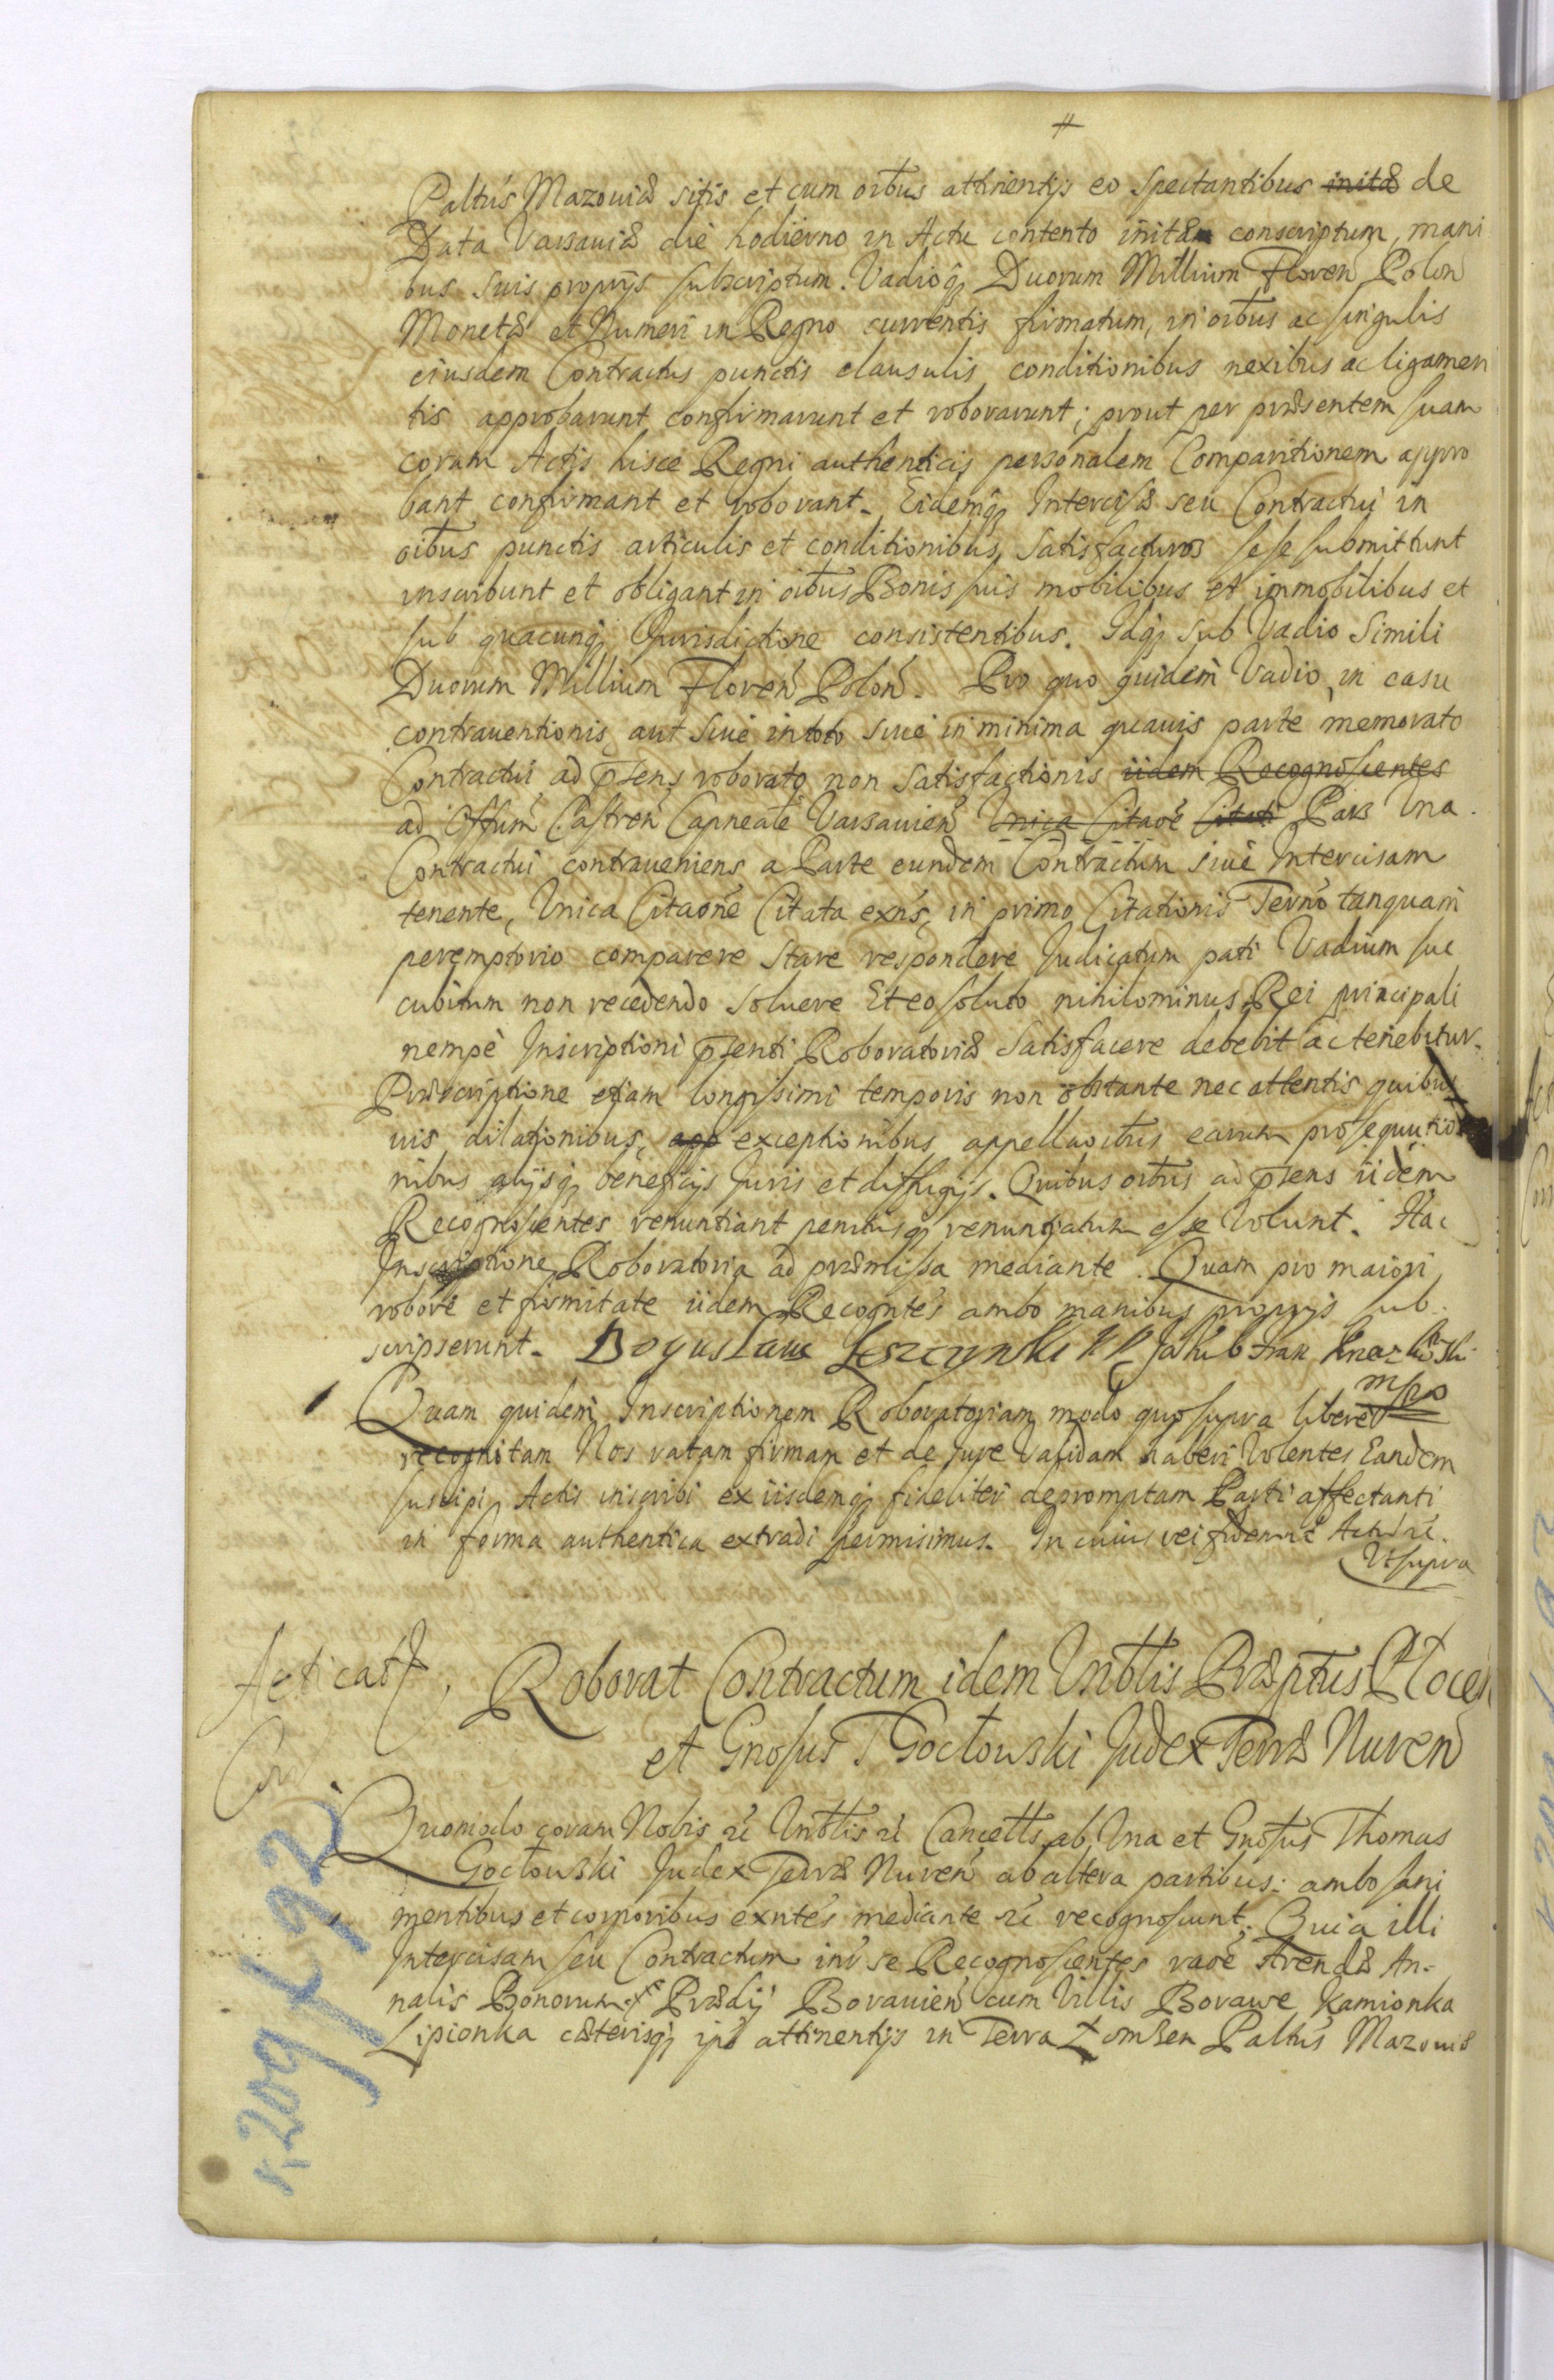 #
Paltūs Mazouiæ sitis et cum oībus attinentijs eo spectantibus initæ de
Data Varsauiæ die hodierno in Actu contento initæ conscriptum, mani
bus suis proprijs subscriptum. Vadioq̨ Duorum Millium Floren Polon
Monetæ et Numeri in Regno currentis firmatum, in oībus ac singulis
eiusdem Contractus punctis clausulis, conditionibus nexibus ac ligamen
tis approbarunt confirmarunt et roborarunt; prout per præsentem suam
coram Actis hisce Regni authenticis personalem Comparitionem appro
bant confirmant et roborant. Eidemq̨ Intercisæ seu Contractui in
oībus punctis articulis et conditionibus satisfacturos sese submittunt
inscribunt et obligant in oībus Bonis suis mobilibus et immobilibus et
sub quacunq̨ Jurisdictione consistentibus. Idq̨ sub Vadio Simili
Duorum Millium Floren Polon. Pro quo quidem Vadio, in casu
contrauentionis, aut siue in toto siue in minima quauis parte memorato
Contractui, ad p̄sens roborato non satisfactionis iidem Recognoscentes
ad Offūm Castren Capneale Varsauien Vnica Citaōe Citati Pars Vna
Contractui contraueniens a Parte eundem Contractum siue Intercisam
tenente, Vnica Citaone Citata exns, in primo Citationis Terno tanquam
peremptorio comparere stare respondere Judicatum pati Vadium suc
cubitum non recedendo soluere Et eo soluto nihilominus Rei principali
nempè Inscriptioni p̄senti Roboratoriæ satisfacere debebit ac tenebitur.
Præscriptione etiam longissimi temporis non obstante nec attentis quibus
uis dilationibus, app exceptionibus appellaoibus earum prosequutio
nibus alijsq̨ beneficijs Juris et diffugijs. Quibus oībus ad p̄sens iidem
Recognoscentes renuntiant penitusq̨ renuntiatum esse Volunt. Hac
Inscriptione Roboratoria ad præmissa mediante. Quam pro maiori
robore et firmitate iidem Recogntes ambo manibus proprijs sub
scripserunt. Bogusław Leszczynski Jakub Fran
mpro
Quam quidem Inscriptionem Roboratoriam modo quo supra liberè
recognitam Nos ratam firmam et de Jure Validam haberi Volentes Eandem
suscipi, Actis inscribi ex iisdemq̨ fideliter depromptam Parti affectanti
in forma authentica extradi permisimus. In cuius rei fidem rc̄ Actū rc̄.
Vt supra
Acticat
Roborat Contractum idem Inbtlis Præptus Płocen
et Gnosus T Gocłowski Judex Terræ Nuren
Quomodo coram Nobis rc̄ Inbtlis rc̄ Cancells ab Vna et Gnosus Thomas
Gocłowski Judex Terræ Nuren ab altera partibus: ambo sani
mentibus et corporibus exntes mediante rc̄ recognoscunt. Quia illi
Intercisam seu Contractum int̄ se Recognoscentes raoē Arendæ An=
nalis Bonorum Prædij Borauien cum Villis Borawe, Kamionka
Lipionka cæterisq̨ ip̄o attinentijs in Terra Łomzen Paltūs Mazouiæ
k 209 f 92